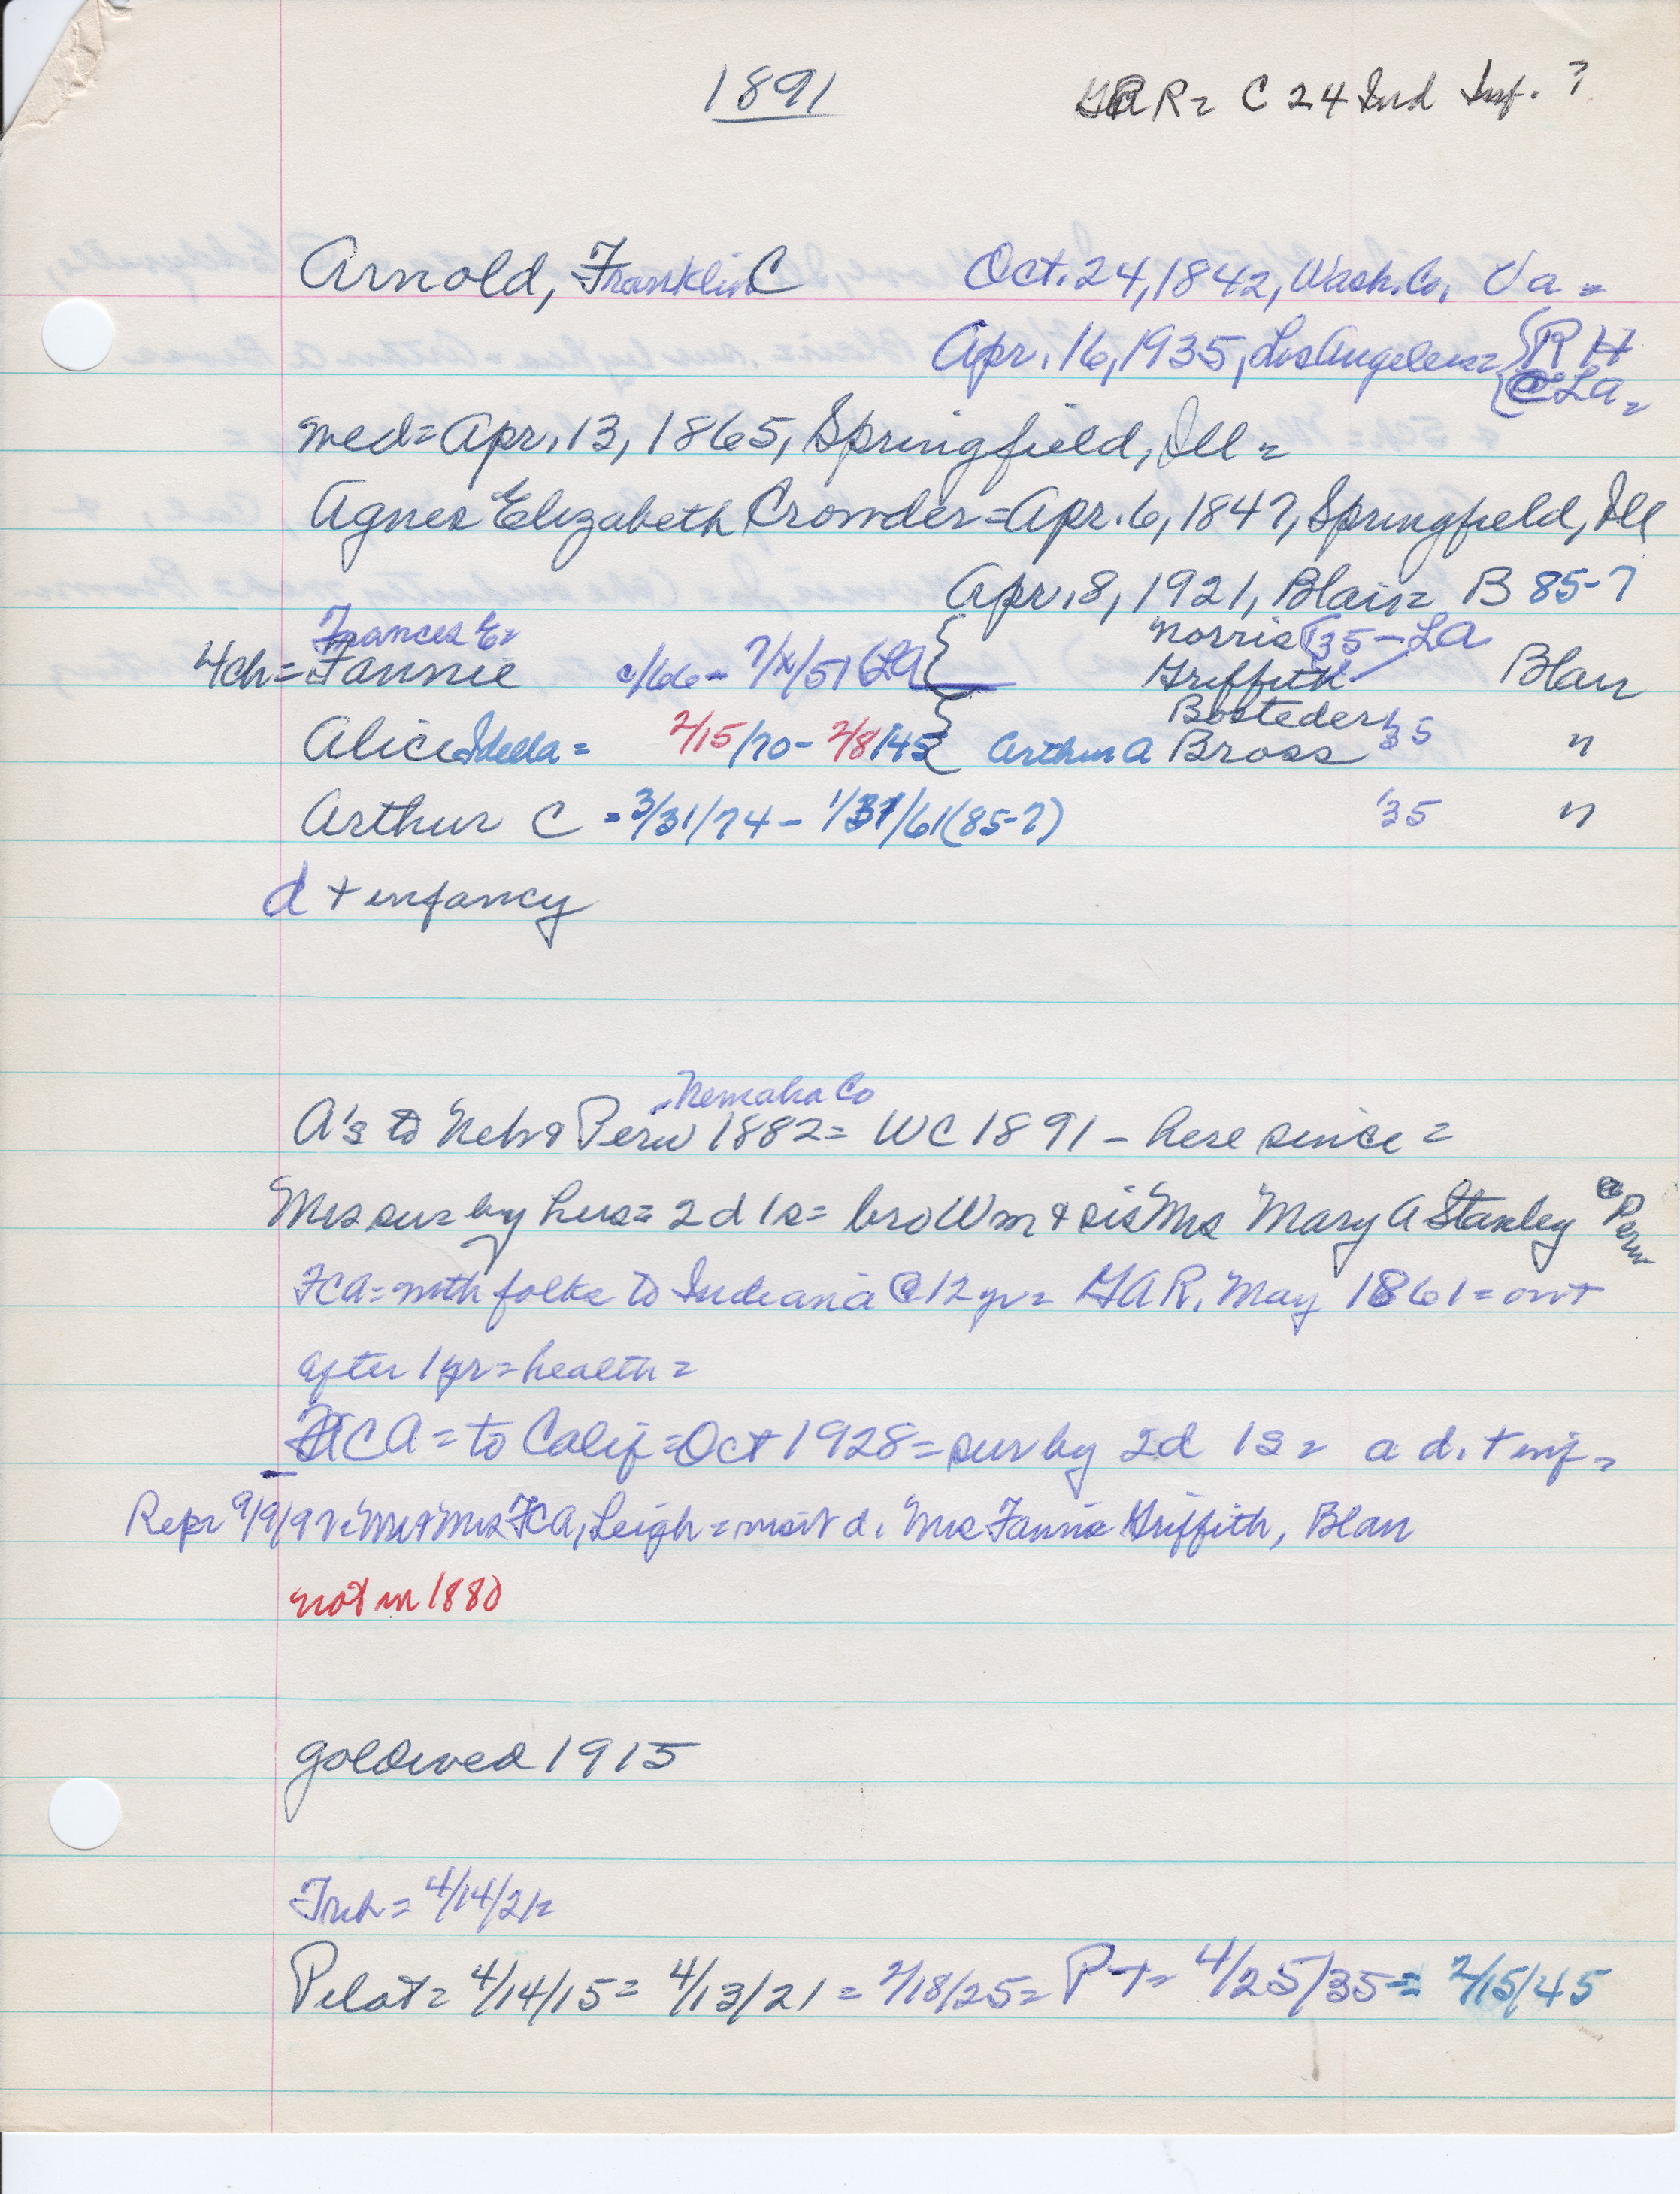 1891
GAR= C 24 Ind Inf. ?
Arnold, Franklin C Oct. 24, 1842, Wash. Co, Va =
Apr. 16, 1935, Los Angeles = {R H
{@ LA =
med= Apr. 13, 1865, Springfield, Ill =
Agnes Elizabeth Crowder = Apr. 6, 1847, Springfield, Ill
Apr. 8, 1921, Blair = B 85-7
Frances E = Norris ('35 - LA
4ch= Fannie c/66 - 7/x/51 (LA) { Griffith Blair
Bosteder
Alice Idella = 2/15/70 - 2/8/45 { Arthur A Bross '35 "
Arthur C = 3/31/74 - 1/31/61 (85-7) '35 "
d + infancy
Nemaha Co
A's to Neb & Peru 1882= WC 1891 - here since =
Mrs sur by hus= 2 d 1 s= bro Wm & sis Mrs Mary A Stanley @ Peru
FCA= with folks to Indiana @ 12 yr= GAR, May 1861= out
after 1 yr= health=
FCA= to Calif= Oct 1928= sur by 2d 1s= a d. + inf=
Repr 9/9/97= Mr & Mrs FCA, Leigh= visit d. Mrs Fannie Griffith, Blair
not in 1880
goldwed 1915
Trib= 4/14/21=
Pilot= 4/14/15= 4/13/21= 2/18/25= P-T= 4/25/35= 2/15/45